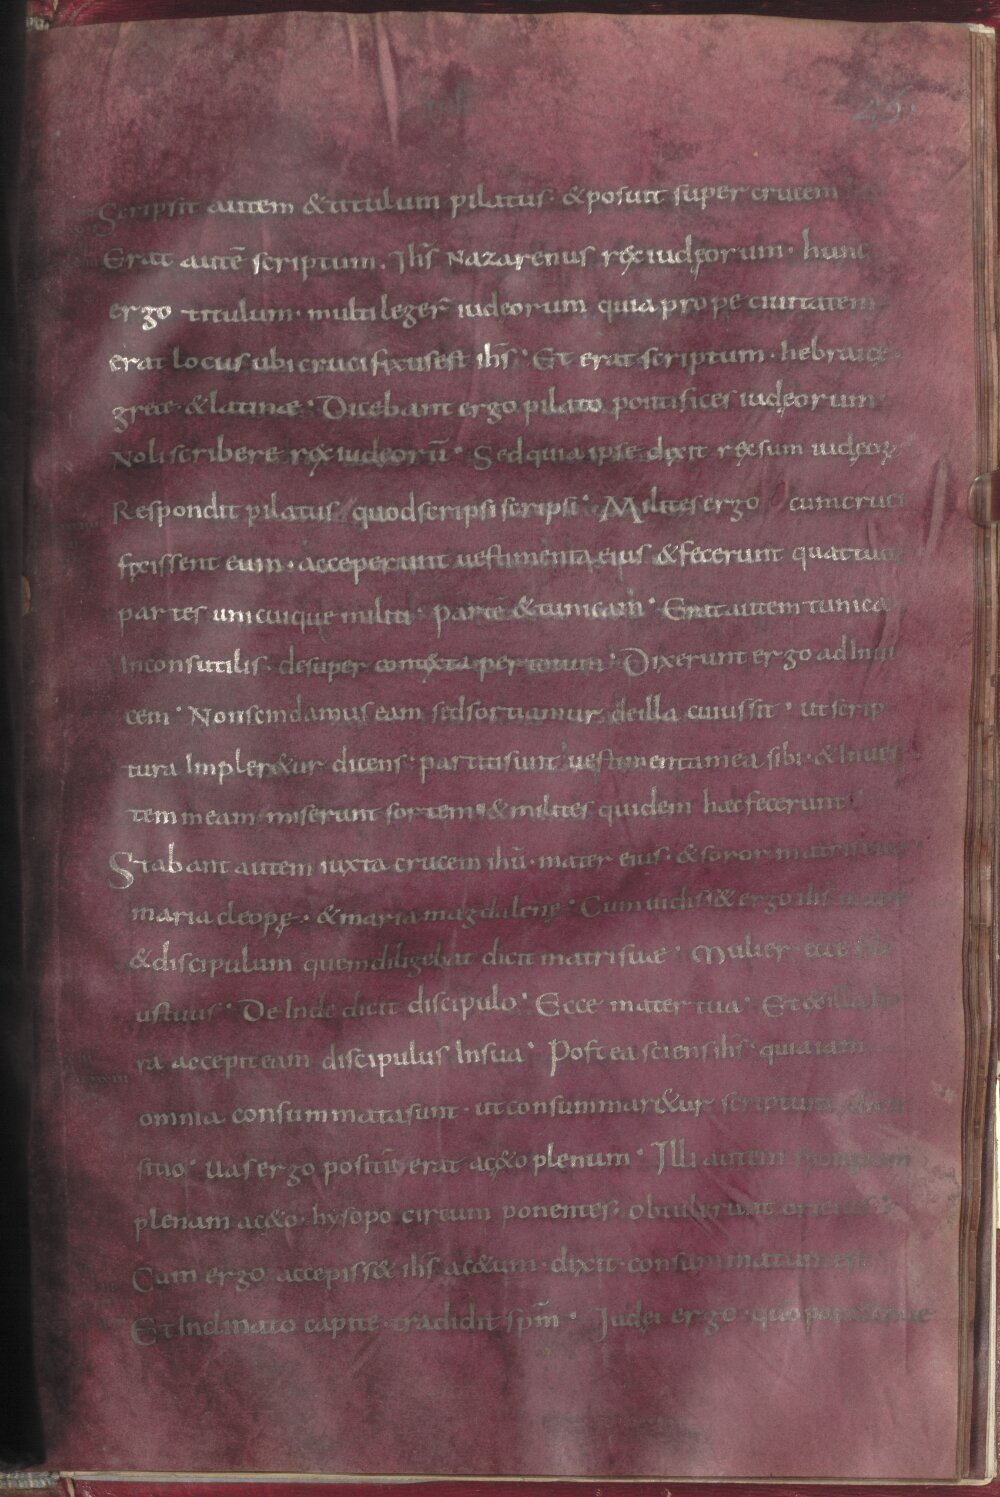 46
Scripsit autem & titulum pilatus· & posuit super crucem
Erat autē scriptum. Ihs̄ Nazarenus rex iudęorum· hunc
ergo titulum· multi leger̄ iudeorum quia prope ciuitatem
erat locus ubi crucifixus est ihs̄· Et erat scriptum· hebraice·
grece· & latinæ· Dicebant ergo pilato pontifices iudęorum·
Noli scribere rex iudęorū· Sed quia ipse dixit rex sum iudęoꝝ
Respondit pilatus· quod scripsi scripsi· Milites ergo cum cruci
fixissent eum· acceperunt uestimenta eius & fecerunt quattuor
partes unicuique militi· partē & tunicam· Erat autem tunica
Inconsutilis· desuper contexta per totum· Dixerunt ergo ad Inui
cem· Non scindamus eam sed sortiamur de illa cuius sit· ut scrip
tura Impler&ur dicens· partiti sunt uestimenta mea sibi· & In ues
tem meam miserunt sortem· & milites quidem hæc fecerunt
Stabant autem iuxta crucem ihū· mater eius· & soror matris eius
maria cleopę· & maria magdalenę· Cum uidiss& ergo ihs̄
& discipulum quem diligebat dicit matri suæ· Mulier ecce
us tuus· De Inde dicit discipulo· Ecce mater tua· Et ex illa ho
ra accepit eam discipulus In sua· Postea sciens ihs̄· quia iam
omnia consummata sunt· ut consummar&ur scriptura
sitio· Uas ergo positū erat ac&o plenum· Illi autem spongiam
plenam ac&o· hysopo circum ponentes· obtulerunt ori eius·
Cum ergo accepiss& ihs̄ ac&um· dixit· consummatum est·
Et Inclinato capite· tradidit spm̄· Iudęi ergo· quo